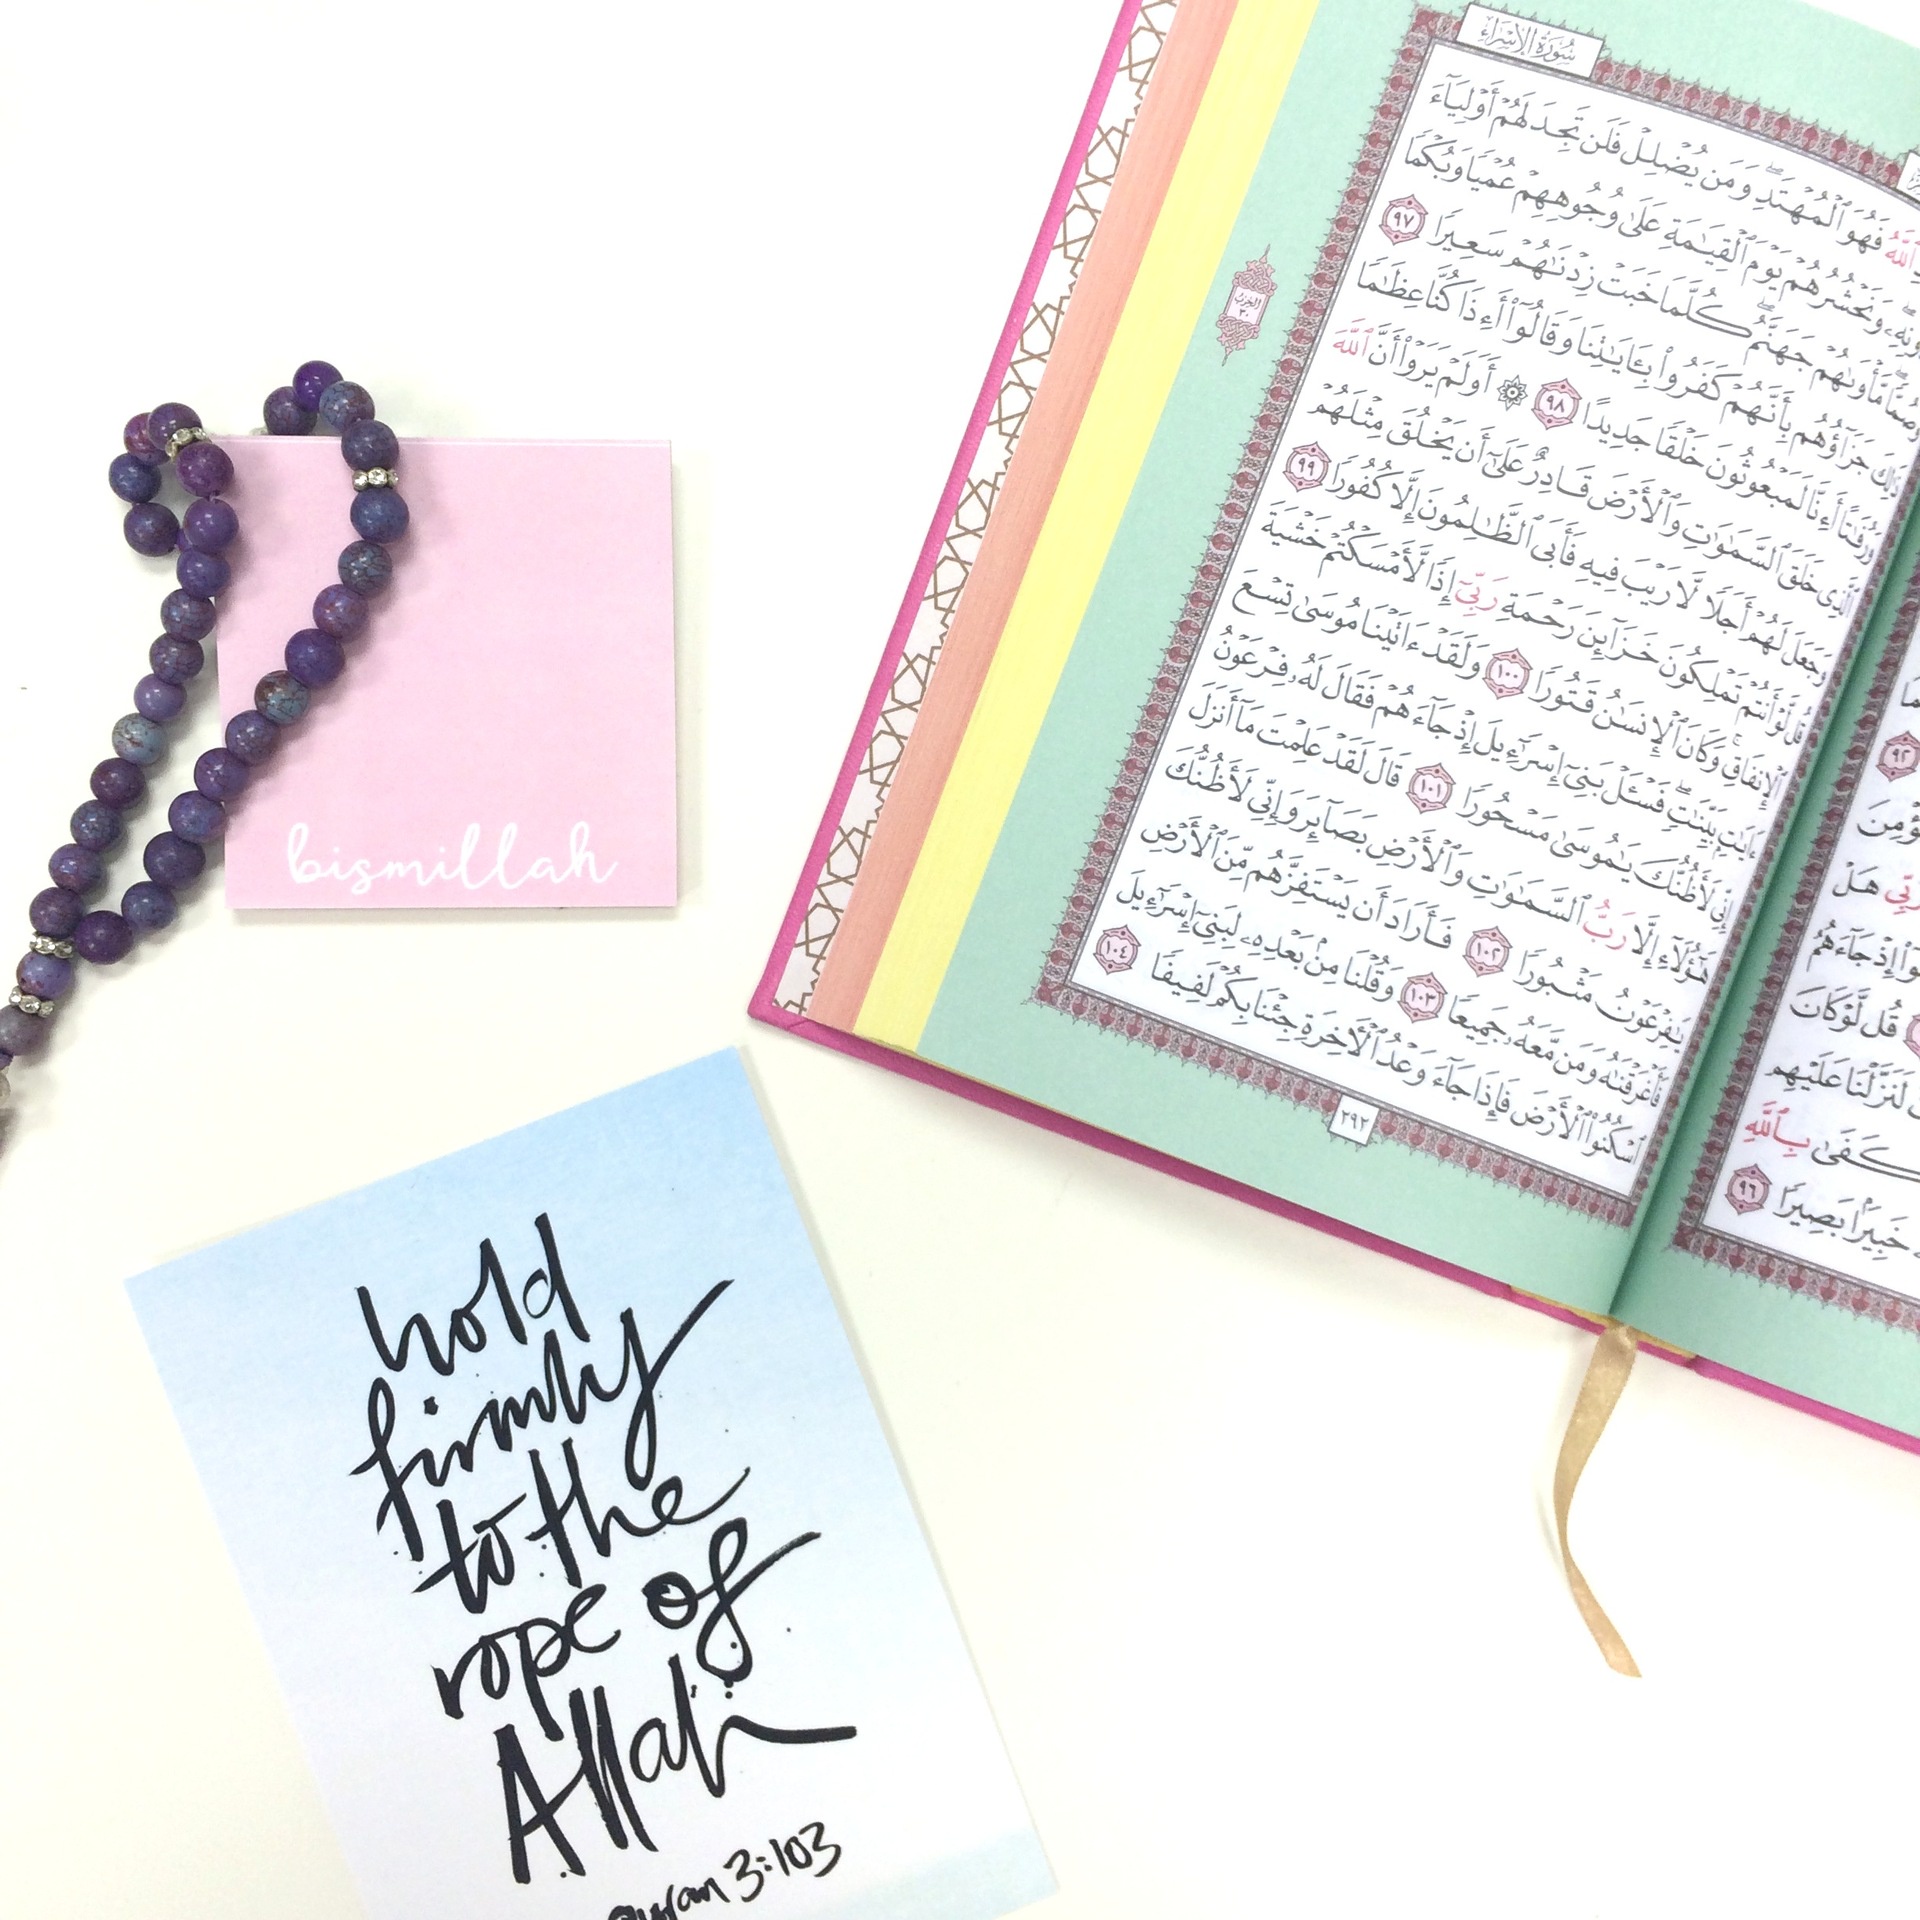 سُورَةُ الإِسْرَاءِ
ٱللَّهُ فَهُوَ ٱلْمُهْتَدِ ۖ وَمَن يُضْلِلْ فَلَن تَجِدَ لَهُمْ أَوْلِيَآءَ
وَنَحْشُرُهُمْ يَوْمَ ٱلْقِيَـٰمَةِ عَلَىٰ وُجُوهِهِمْ عُمْيًا وَبُكْمًا
وَصُمًّا ۖ مَّأْوَىٰهُمْ جَهَنَّمُ ۖ كُلَّمَا خَبَتْ زِدْنَـٰهُمْ سَعِيرًا ٩٧
ذَٰلِكَ جَزَآؤُهُم بِأَنَّهُمْ كَفَرُوا۟ بِـَٔايَـٰتِنَا وَقَالُوٓا۟ أَءِذَا كُنَّا عِظَـٰمًا
وَرُفَـٰتًا أَءِنَّا لَمَبْعُوثُونَ خَلْقًا جَدِيدًا ٩٨ ۞ أَوَلَمْ يَرَوْا۟ أَنَّ ٱللَّهَ
ٱلَّذِى خَلَقَ ٱلسَّمَـٰوَٰتِ وَٱلْأَرْضَ قَادِرٌ عَلَىٰٓ أَن يَخْلُقَ مِثْلَهُمْ
وَجَعَلَ لَهُمْ أَجَلًا لَّا رَيْبَ فِيهِ فَأَبَى ٱلظَّـٰلِمُونَ إِلَّا كُفُورًا ٩٩
قُل لَّوْ أَنتُمْ تَمْلِكُونَ خَزَآئِنَ رَحْمَةِ رَبِّىٓ إِذًا لَّأَمْسَكْتُمْ خَشْيَةَ
ٱلْإِنفَاقِ ۚ وَكَانَ ٱلْإِنسَـٰنُ قَتُورًا ١٠٠ وَلَقَدْ ءَاتَيْنَا مُوسَىٰ تِسْعَ
ءَايَـٰتٍۭ بَيِّنَـٰتٍ ۖ فَسْـَٔلْ بَنِىٓ إِسْرَٰٓءِيلَ إِذْ جَآءَهُمْ فَقَالَ لَهُۥ فِرْعَوْنُ
إِنِّى لَأَظُنُّكَ يَـٰمُوسَىٰ مَسْحُورًا ١٠١ قَالَ لَقَدْ عَلِمْتَ مَآ أَنزَلَ
هَـٰٓؤُلَآءِ إِلَّا رَبُّ ٱلسَّمَـٰوَٰتِ وَٱلْأَرْضِ بَصَآئِرَ وَإِنِّى لَأَظُنُّكَ
يَـٰفِرْعَوْنُ مَثْبُورًا ١٠٢ فَأَرَادَ أَن يَسْتَفِزَّهُم مِّنَ ٱلْأَرْضِ
فَأَغْرَقْنَـٰهُ وَمَن مَّعَهُۥ جَمِيعًا ١٠٣ وَقُلْنَا مِنۢ بَعْدِهِۦ لِبَنِىٓ إِسْرَٰٓءِيلَ
ٱسْكُنُوا۟ ٱلْأَرْضَ فَإِذَا جَآءَ وَعْدُ ٱلْـَٔاخِرَةِ جِئْنَا بِكُمْ لَفِيفًا ١٠٤
٢٩٢
الحزب
٣٠
٩٢
هَلْ
إِذْ جَآءَهُمُ
قُل لَّوْ كَانَ
لَنَزَّلْنَا عَلَيْهِم
كَفَىٰ بِٱللَّهِ
خَبِيرًۢا بَصِيرًا ٩٦
bismillah
hold
firmly
to the
rope of
Allah
Quran 3:103